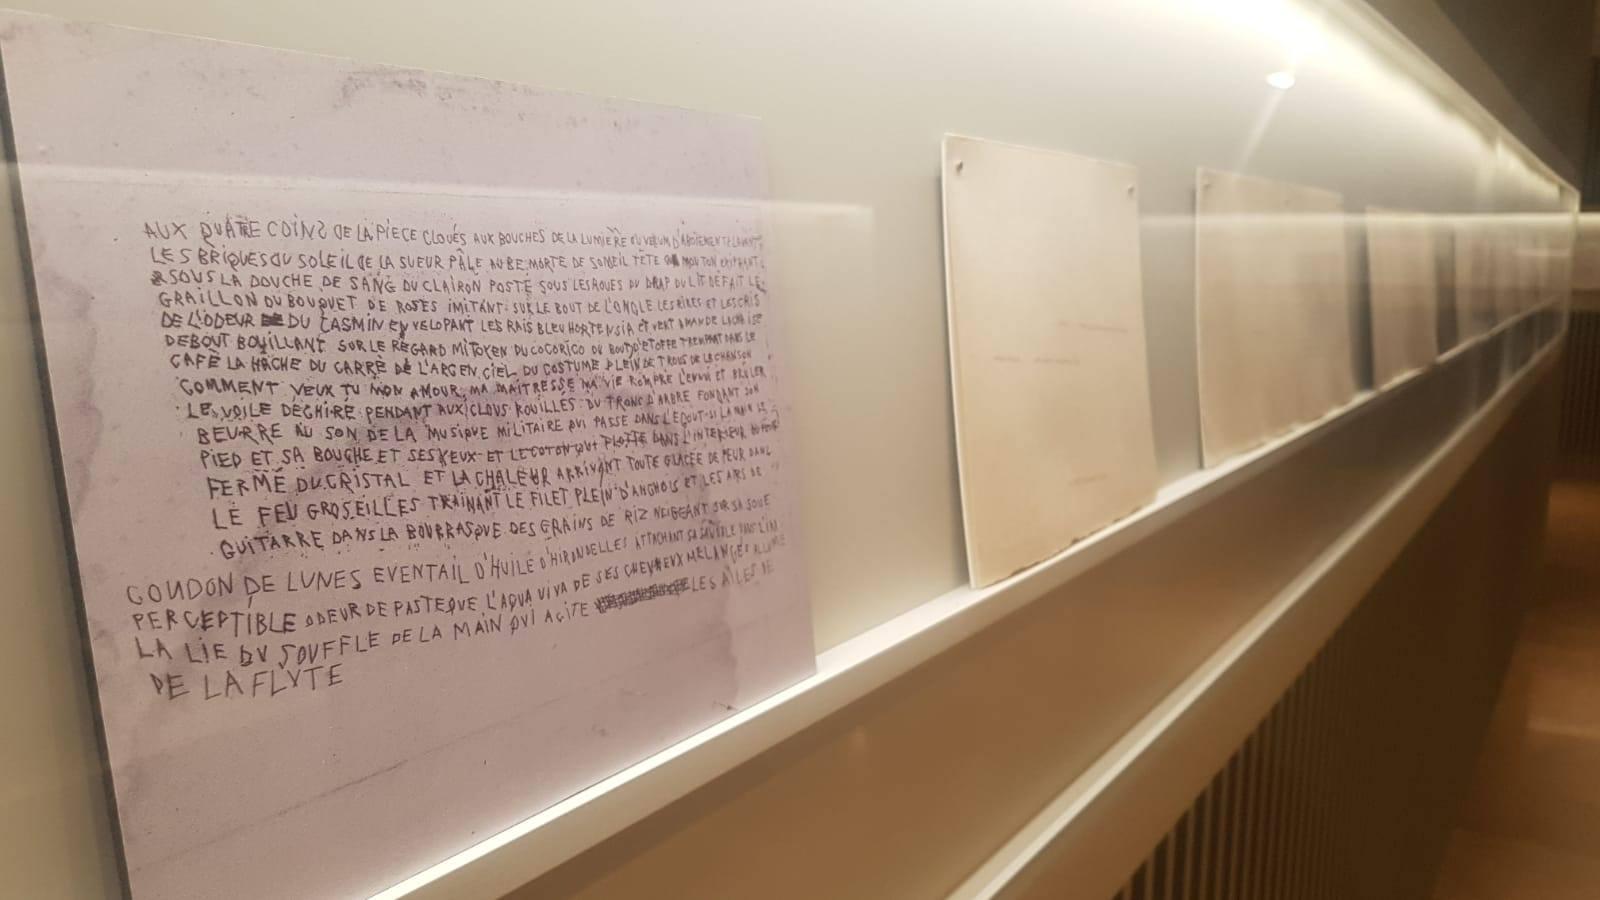 AUX QUATRE COINS DE LA PIECE CLOUÉS AUX BOUCHES DE LA LUMIÈRE DU VELUM D'ABOIEMENTS LAVANT
LES BRIQUES DU SOLEIL DE LA SUEUR PÂLE AUBE MORTE DE SOMEIL TÊTE MOUTON
SOUS LA DOUCHE DE SANG DU CLAIRON POSTÉ SOUS LES ROUES DU DRAP DU LIT DÉFAIT LE
GRAILLON DU BOUQUET DE ROSES IMITANT SUR LE BOUT DE L'ONGLE LES RIRES ET LES CRIS
DE L'ODEUR DU JASMIN ENVELOPANT LES RAIS BLEU HORTENSIA ET VERT AMANDE LA CHAISE
DEBOUT BOUILLANT SUR LE REGARD MITOYEN DU COCORICO DU BOUT D'ETOFFE TREMPANT DANS LE
CAFÉ LA HACHE DU CARRÉ DE L'ARGEN CIEL DU COSTUME PLEIN DE TROUS DE LA CHANSON
COMMENT VEUX TU MON AMOUR, MA MAITRESSE MA VIE ROMPRE L'ENNUI ET BRÛLER
LE VOILE DECHIRE PENDANT AUX CLOUS ROUILLES DU TRONC D'ARBRE FONDANT SON
BEURRE AU SON DE LA MUSIQUE MILITAIRE QUI PASSE DANS L'EGOUT SI LA MAIN LE
PIED ET SA BOUCHE ET SES YEUX ET LE COTON FLOTTE DANS L'INTERIEUR DU
FERMÉ DU CRISTAL ET LA CHALEUR ARRIVANT TOUTE GLACÉE DE PEUR DANS
LE FEU GROSEILLES TRAINANT LE FILET PLEIN D'ANCHOIS ET LES AIRS DE
GUITARRE DANS LA BOURRASQUE DES GRAINS DE RIZ NEIGEANT SUR SA JOUE
GOUDON DE LUNES EVENTAIL D'HUILE D'HIRONDELLES ATTACHANT SA DANS L'IM
PERCEPTIBLE ODEUR DE PASTEQUE L'AQUA VIVA DE SES CHEVEUX MELANGÉS
LA LIE DU SOUFFLE DE LA MAIN QUI AGITE LES AILES DE
DE LA FLUTE